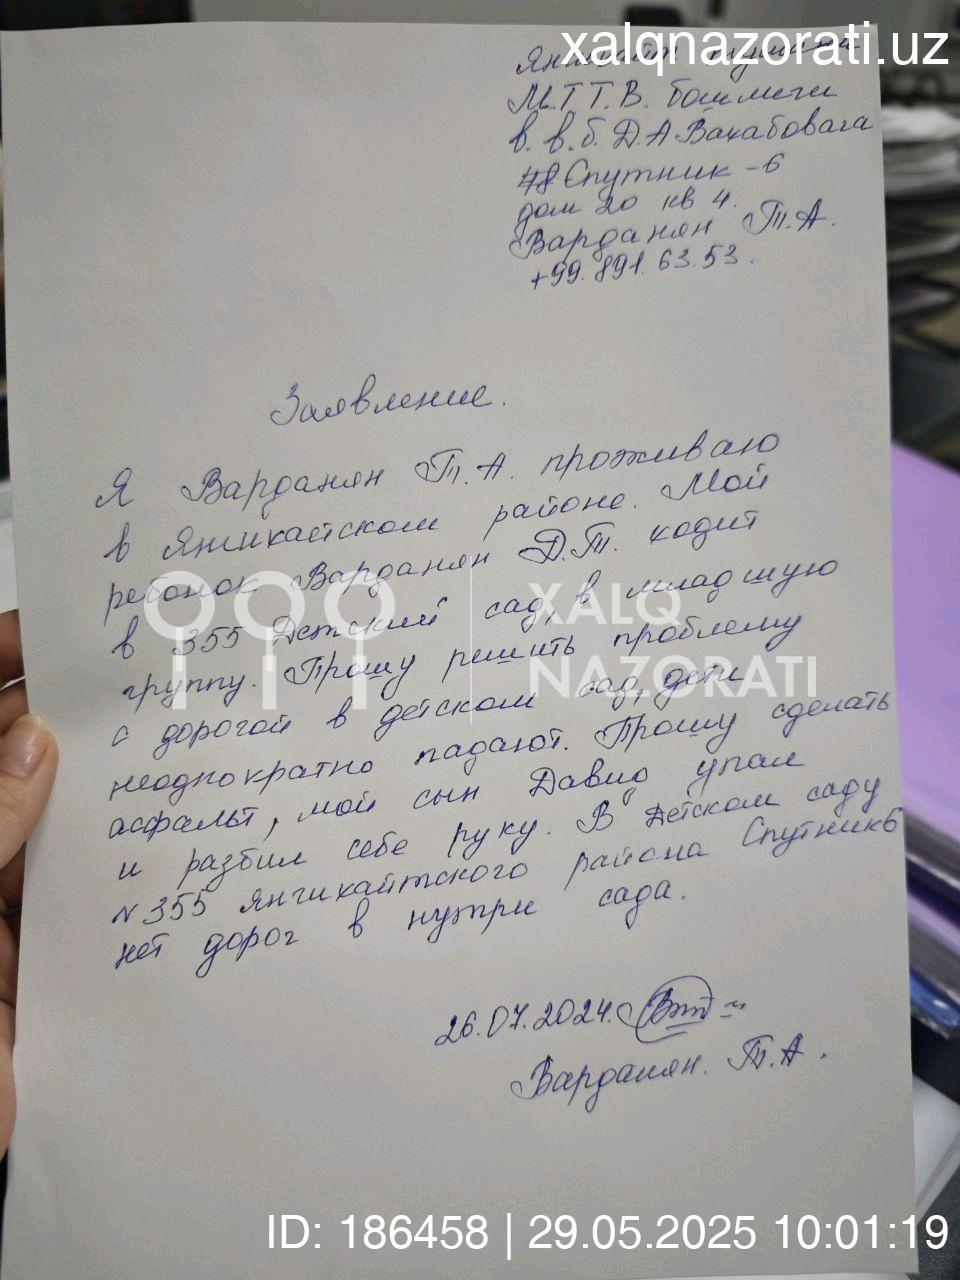 xalqnazorati.uz
М.Т Т. В. бошлиғи
в. в. б. Д. А Вахабовага
Спутник - 6
дом 20 кв 4.
Варданян Т. А.
+99. 891. 63. 53.
Заявление.
Я Варданян Т. А. проживаю
в Янгихаётском районе. Мой
ребенок Варданян Д. Т. ходит
в 355 Детский сад, в младшую
группу. Прошу решить проблему
с дорогой в детском сад, дети
неоднократно падают. Прошу сделать
асфальт, мой сын Давид упал
и разбил себе руку. В Детском саду
№ 355 Янгихаётского района Спутник 6
нет дорог в нутри сада.
26.07.2024.
Варданян. Т. А.
XALQ
NAZORATI
ID: 186458 | 29.05.2025 10:01:19